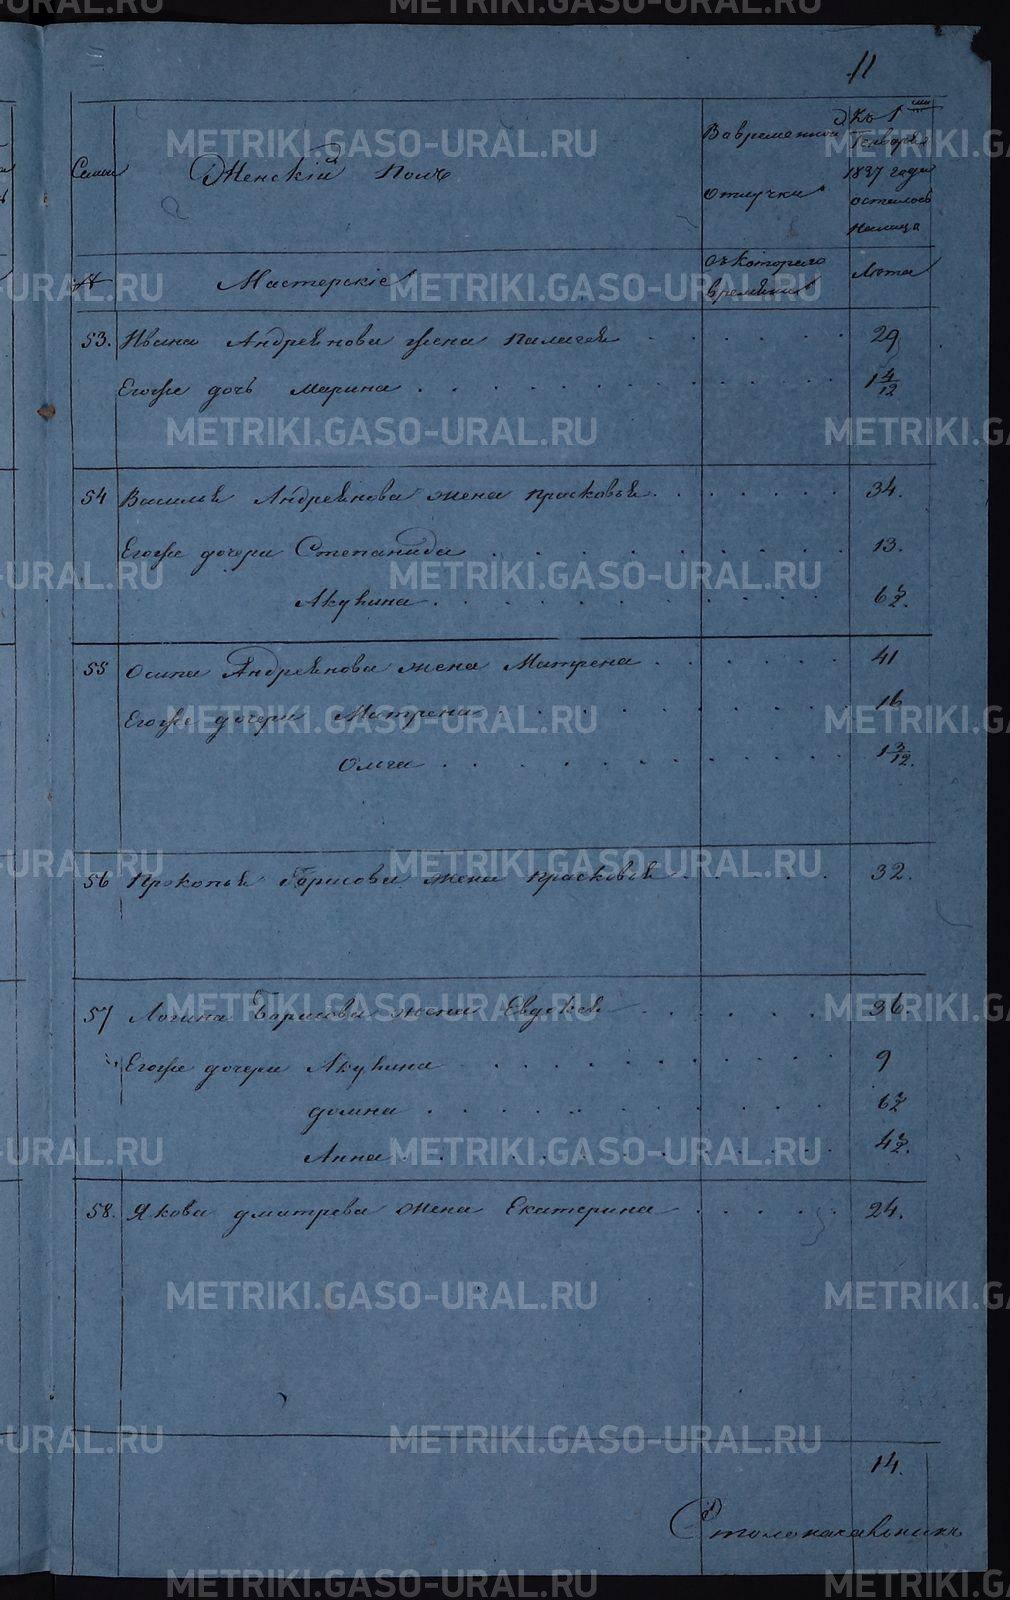 11
Семьи
Женскій полъ
Вовременной
отлучкѣ
Къ 1
Генваря
1837 года
осталось
налицо
№
Мастерскіе
Съ котораго
времени
Лѣта
53. Ивана Андреянова жена Палагея 29
Егоже дочь Марина 1 4/12
54 Василья Андреянова жена Прасковья 34.
Егоже дочери Степанида 13.
Акулина 6 1/2.
55 Осипа Андреянова жена Матрена 41
Егоже дочери Матрена 16
Ольга 1 3/12.
56 Прокопья Борисова жена Прасковья 32.
57 Логина Борисова жена Евдокея 36.
Егоже дочери Акулина 9
Домна 6 1/2
Анна 4 1/2.
58. Якова Дмитрева жена Екатерина 24.
14.
Столоначальникъ
METRIKI.GASO-URAL.RU